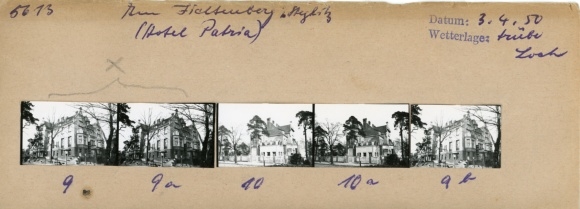 5613 Am Fichtenberg, Steglitz
(Hotel Patria)
Datum: 3.4.50
Wetterlage: trübe
9 9a 10 10a 9b